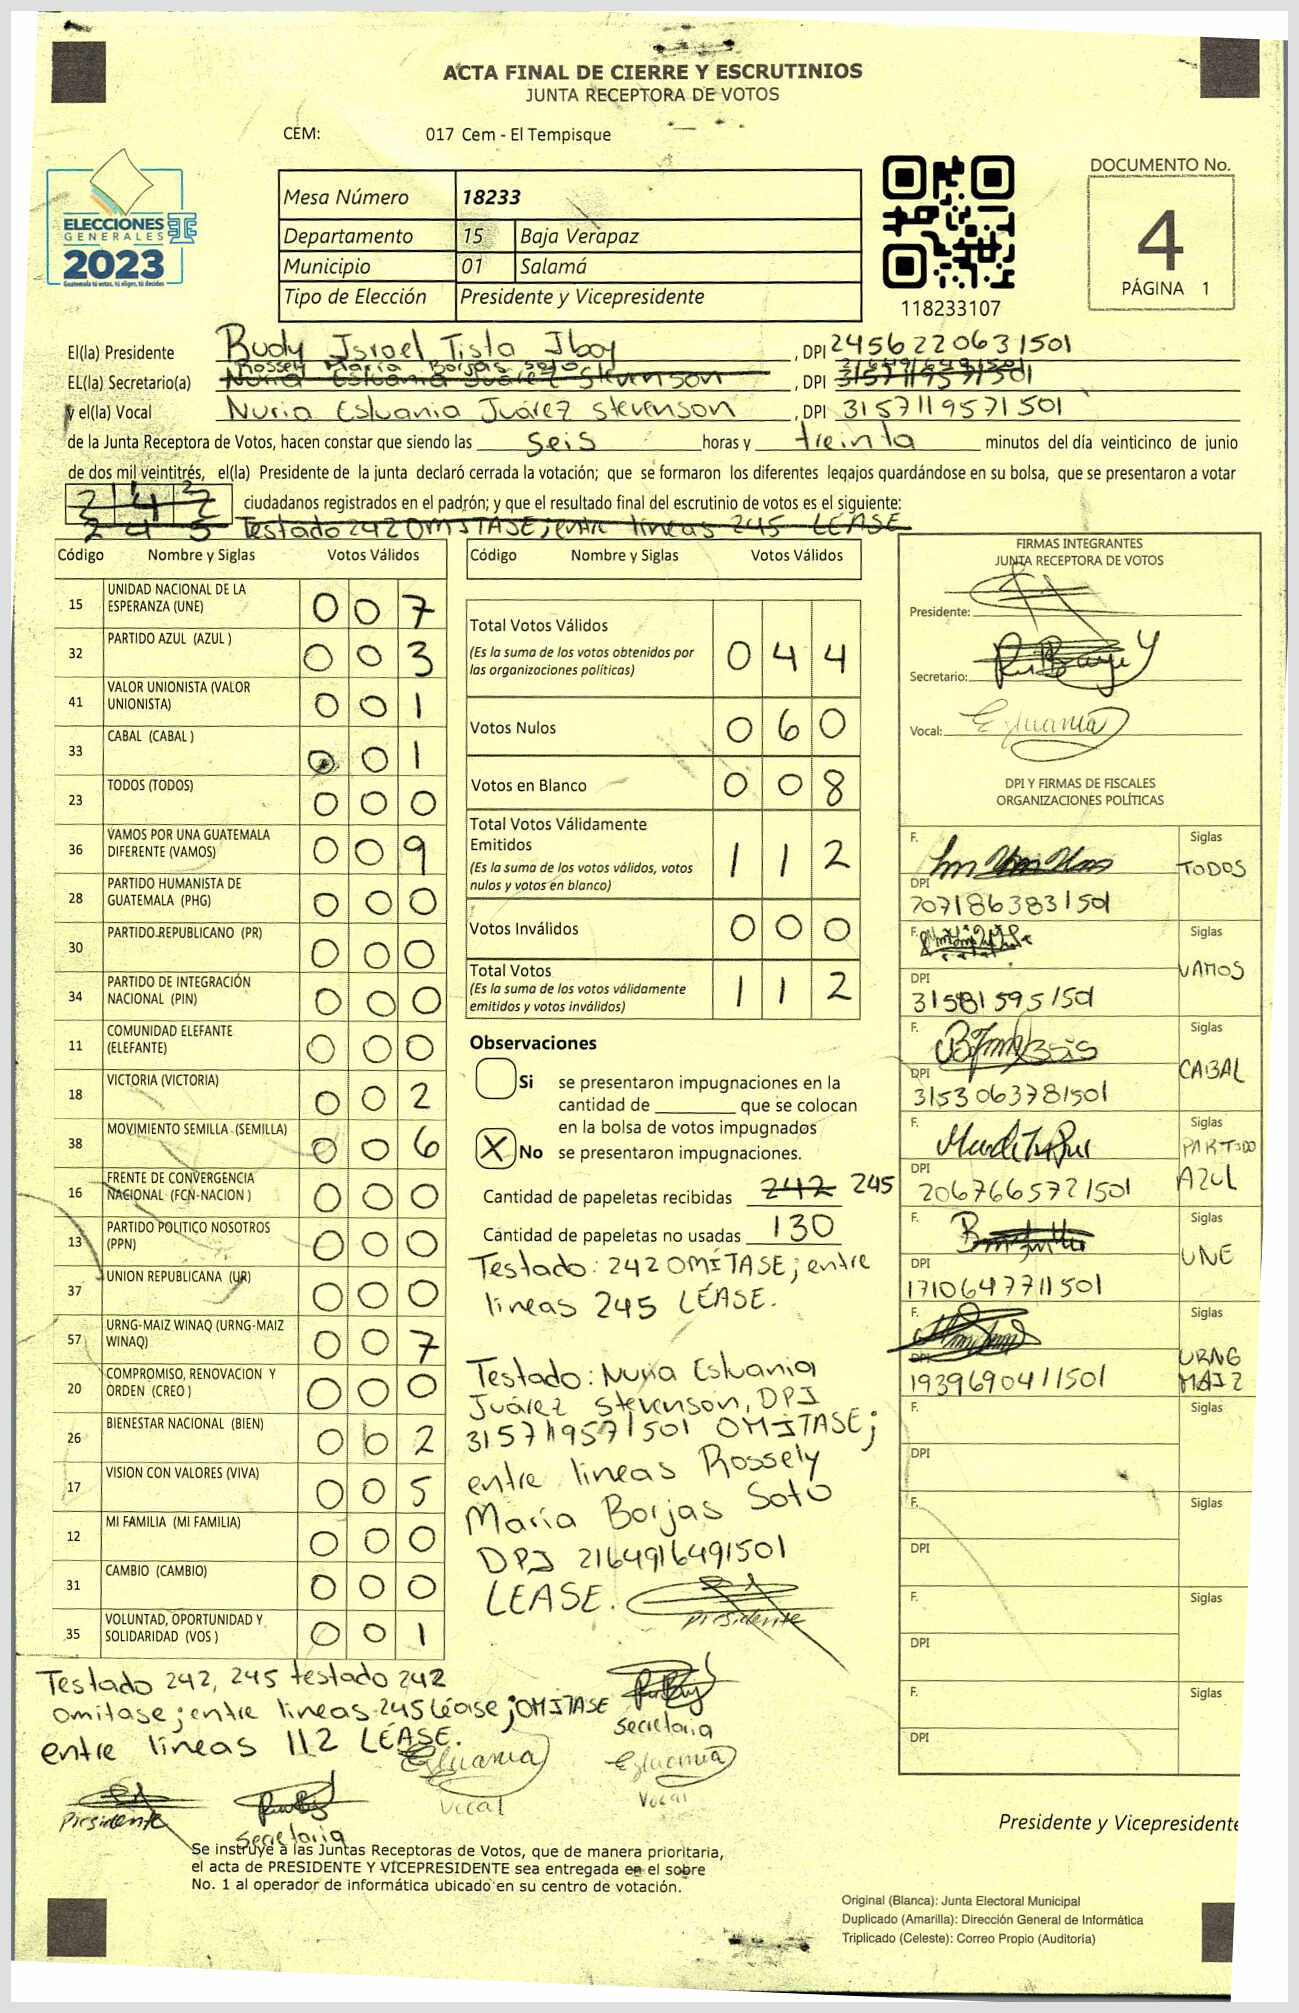 ACTA FINAL DE CIERRE Y ESCRUTINIOS
JUNTA RECEPTORA DE VOTOS
CEM: 017 Cem - El Tempisque
ELECCIONES
GENERALES
2023
Guatemala tú votas, tú eliges, tú decides
Mesa Número 18233
Departamento 15 Baja Verapaz
Municipio 01 Salamá
Tipo de Elección Presidente y Vicepresidente
118233107
DOCUMENTO No.
4
PÁGINA 1
El(la) Presidente Rudy Israel Tista Jboy , DPI 2456220631501
Rossely María Borjas Soto 2164916491501
EL(la) Secretario(a) Nuria Estuania Juárez Stevenson , DPI 3157119571501
y el(la) Vocal Nuria Estuania Juárez Stevenson , DPI 3157119571501
de la Junta Receptora de Votos, hacen constar que siendo las seis horas y treinta minutos del día veinticinco de junio
de dos mil veintitrés, el(la) Presidente de la junta declaró cerrada la votación; que se formaron los diferentes legajos quardándose en su bolsa, que se presentaron a votar
242 ciudadanos registrados en el padrón; y que el resultado final del escrutinio de votos es el siguiente:
245 Testado 242 OMITASE; entre líneas 245 LÉASE
Código Nombre y Siglas Votos Válidos
15 UNIDAD NACIONAL DE LA ESPERANZA (UNE) 0 0 7
32 PARTIDO AZUL (AZUL ) 0 0 3
41 VALOR UNIONISTA (VALOR UNIONISTA) 0 0 1
33 CABAL (CABAL ) 0 0 1
23 TODOS (TODOS) 0 0 0
36 VAMOS POR UNA GUATEMALA DIFERENTE (VAMOS) 0 0 9
28 PARTIDO HUMANISTA DE GUATEMALA (PHG) 0 0 0
30 PARTIDO REPUBLICANO (PR) 0 0 0
34 PARTIDO DE INTEGRACIÓN NACIONAL (PIN) 0 0 0
11 COMUNIDAD ELEFANTE (ELEFANTE) 0 0 0
18 VICTORIA (VICTORIA) 0 0 2
38 MOVIMIENTO SEMILLA (SEMILLA) 0 0 6
16 FRENTE DE CONVERGENCIA NACIONAL (FCN-NACION ) 0 0 0
13 PARTIDO POLITICO NOSOTROS (PPN) 0 0 0
37 UNION REPUBLICANA (UR) 0 0 0
57 URNG-MAIZ WINAQ (URNG-MAIZ WINAQ) 0 0 7
20 COMPROMISO, RENOVACION Y ORDEN (CREO ) 0 0 0
26 BIENESTAR NACIONAL (BIEN) 0 0 2
17 VISION CON VALORES (VIVA) 0 0 5
12 MI FAMILIA (MI FAMILIA) 0 0 0
31 CAMBIO (CAMBIO) 0 0 0
35 VOLUNTAD, OPORTUNIDAD Y SOLIDARIDAD (VOS ) 0 0 1
Código Nombre y Siglas Votos Válidos
Total Votos Válidos 0 4 4
(Es la suma de los votos obtenidos por
las organizaciones políticas)
Votos Nulos 0 6 0
Votos en Blanco 0 0 8
Total Votos Válidamente
Emitidos 1 1 2
(Es la suma de los votos válidos, votos
nulos y votos en blanco)
Votos Inválidos 0 0 0
Total Votos 1 1 2
(Es la suma de los votos válidamente
emitidos y votos inválidos)
Observaciones
Si se presentaron impugnaciones en la
cantidad de ________ que se colocan
en la bolsa de votos impugnados
X No se presentaron impugnaciones.
Cantidad de papeletas recibidas 242 245
Cantidad de papeletas no usadas 130
Testado: 242 OMÍTASE; entre
líneas 245 LÉASE.
Testado: Nuria Estuania
Juárez Stevenson, DPI
3157119571501 OMITASE;
entre líneas Rossely
María Borjas Soto
DPI 2164916491501
LEASE.
Presidente
secretaria
Vocal
FIRMAS INTEGRANTES
JUNTA RECEPTORA DE VOTOS
Presidente:
Secretario:
Vocal:
DPI Y FIRMAS DE FISCALES
ORGANIZACIONES POLÍTICAS
F. Siglas TODOS
DPI 2071863831501
F. Siglas VAMOS
DPI 315815951501
F. Siglas CABAL
DPI 3153063781501
F. Siglas PARTIDO AZUL
DPI 2067665721501
F. Siglas UNE
DPI 1710647711501
F. URNG MAIZ
DPI 1939690411501
F. Siglas
DPI
F. Siglas
DPI
F. Siglas
DPI
F. Siglas
DPI
Testado 242, 245 testado 242
omitase; entre lineas 245 Léase; OMITASE
entre líneas 112 LÉASE.
Presidente
secretaria
Vocal
Presidente y Vicepresidente
Se instruye a las Juntas Receptoras de Votos, que de manera prioritaria,
el acta de PRESIDENTE Y VICEPRESIDENTE sea entregada en el sobre
No. 1 al operador de informática ubicado en su centro de votación.
Original (Blanca): Junta Electoral Municipal
Duplicado (Amarilla): Dirección General de Informática
Triplicado (Celeste): Correo Propio (Auditoría)